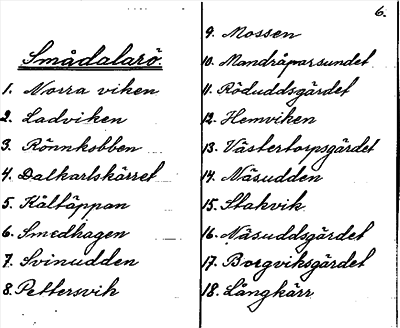 Smådalarö.
1. Norra viken
2. Ladviken
3. Rönnkobben
4. Dalkarlskärret
5. Kältäppan
6. Smedhagen
7. Svinudden
8. Pettersvik
6.
9. Mossen
10. Mandråparsundet
11. Röduddsgärdet
12. Hemviken
13. Västertorpsgärdet
14. Näsudden
15. Stakvik
16. Näsuddsgärdet
17. Borgviksgärdet
18. Långkärr